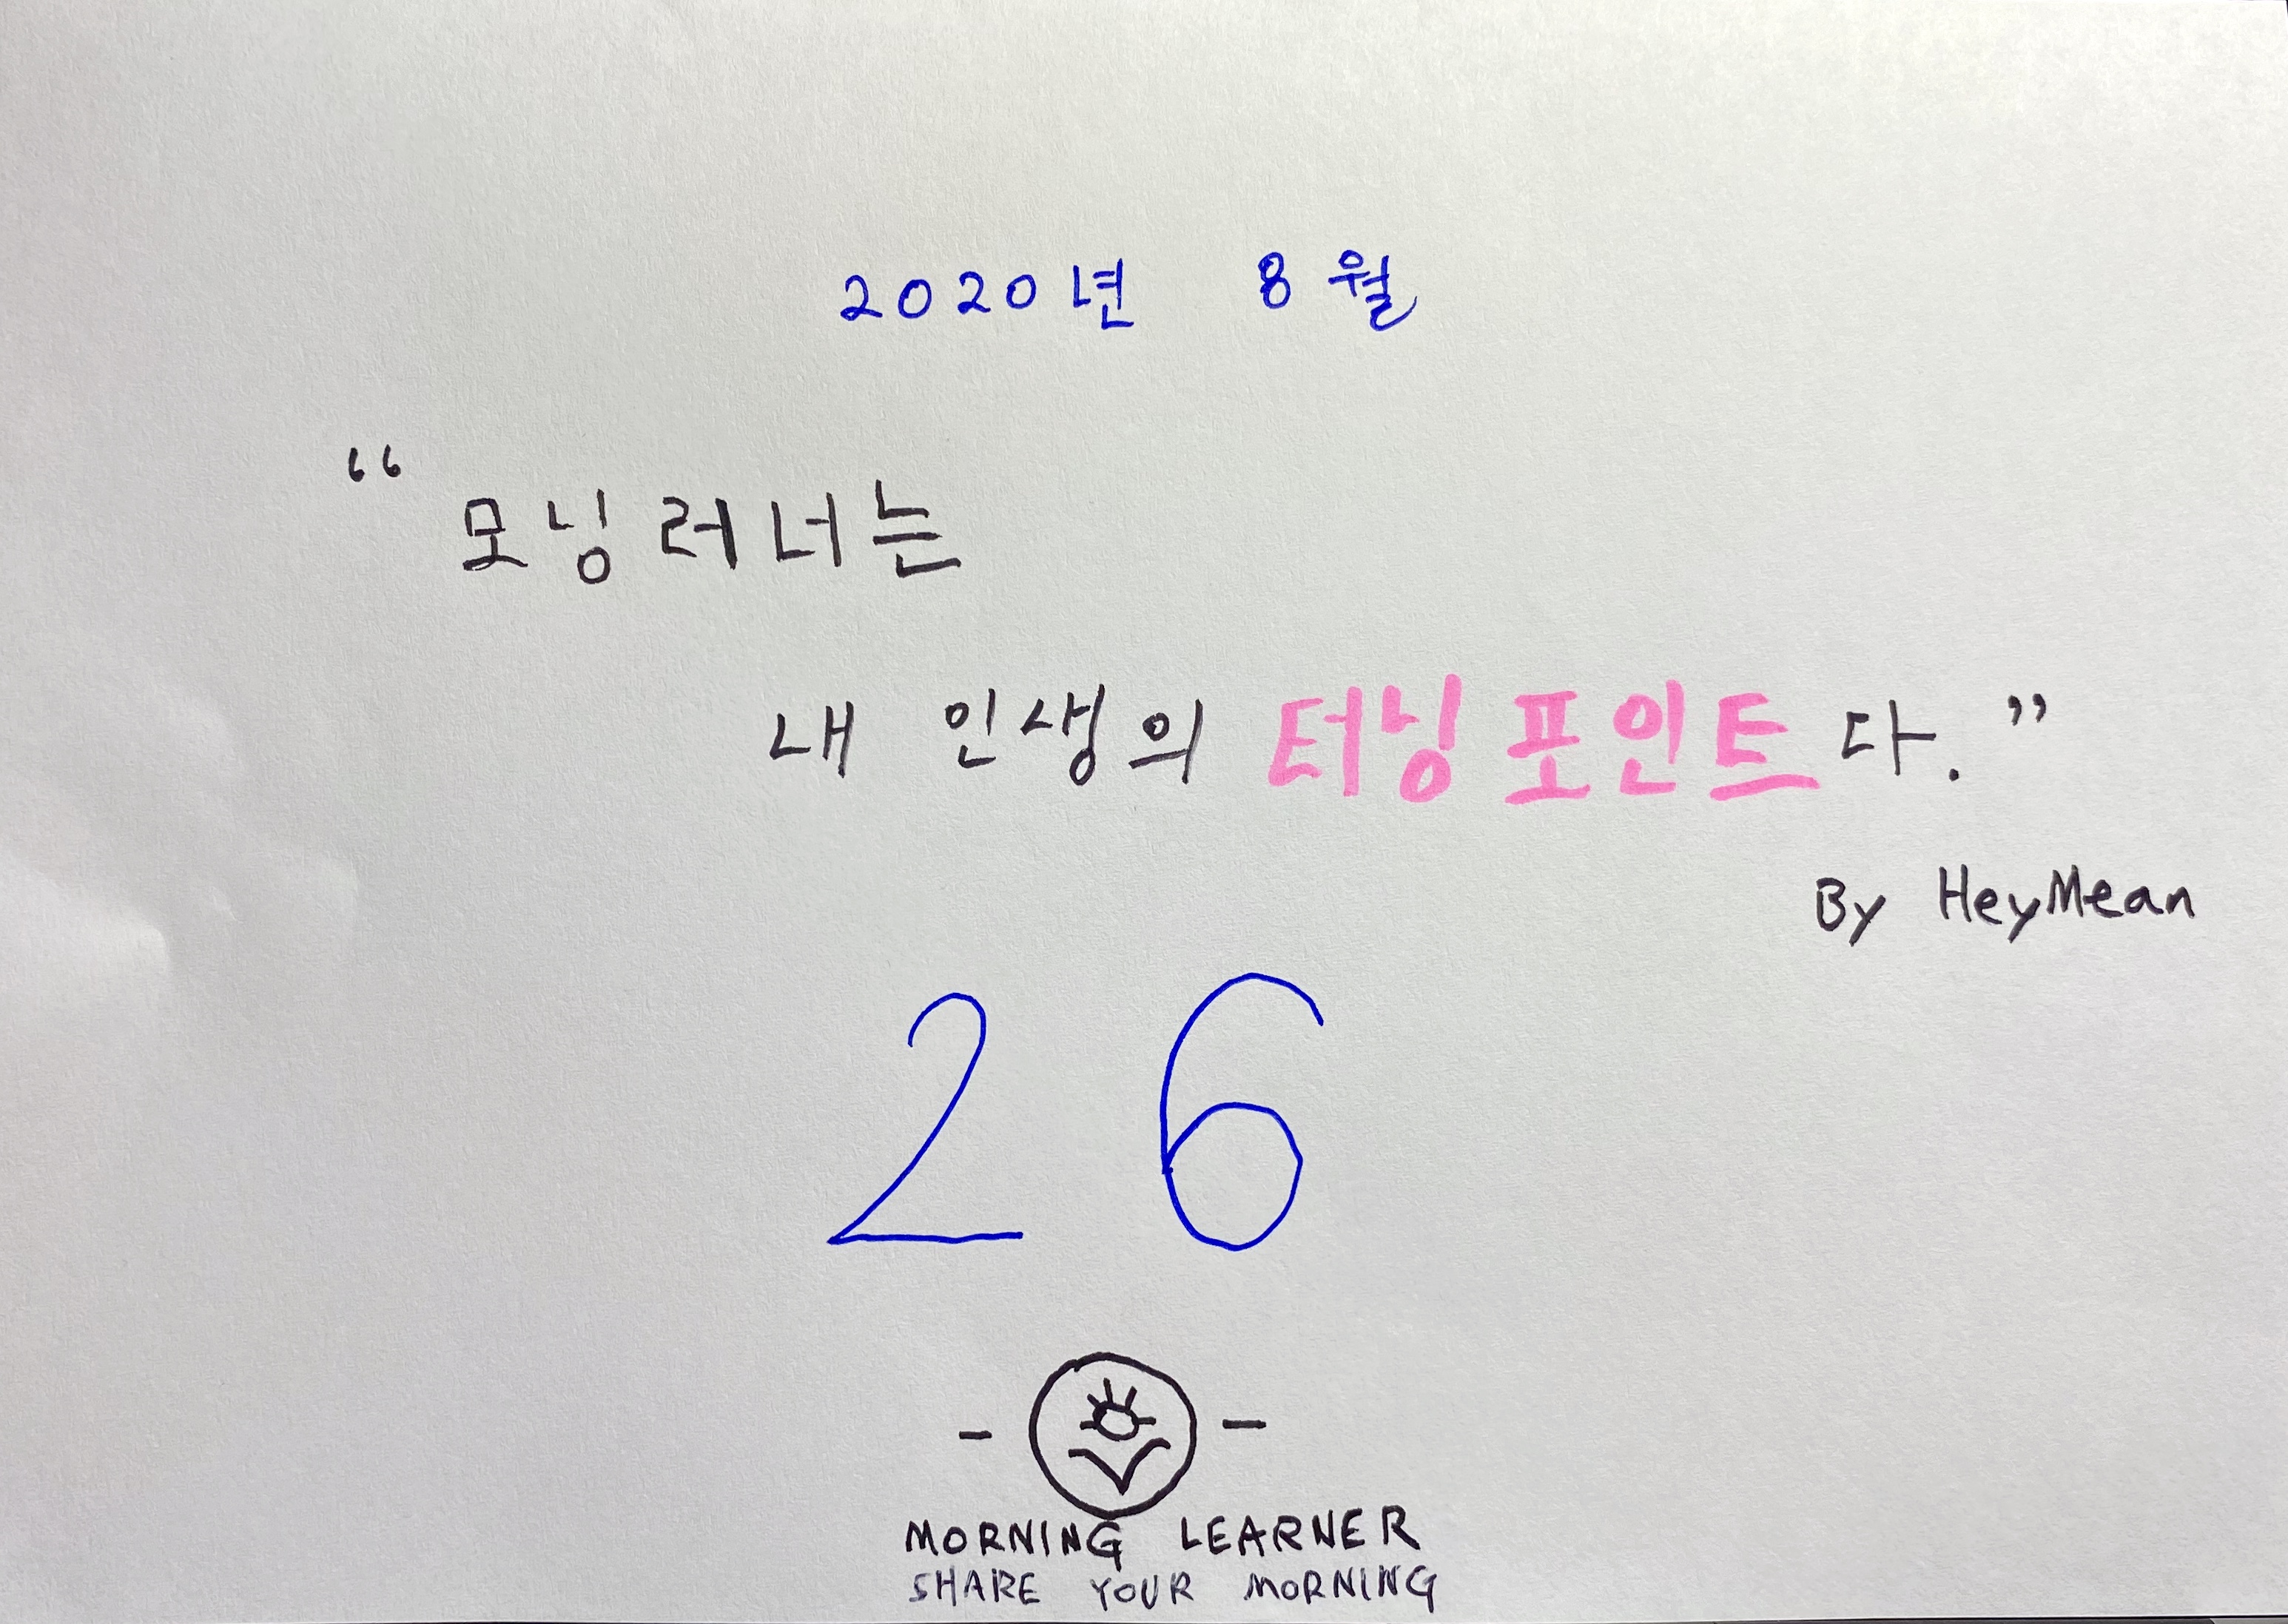 2020년 8월
“모닝러너는
내 인생의 터닝포인트다.”
By HeyMean
26
MORNING LEARNER
SHARE YOUR MORNING